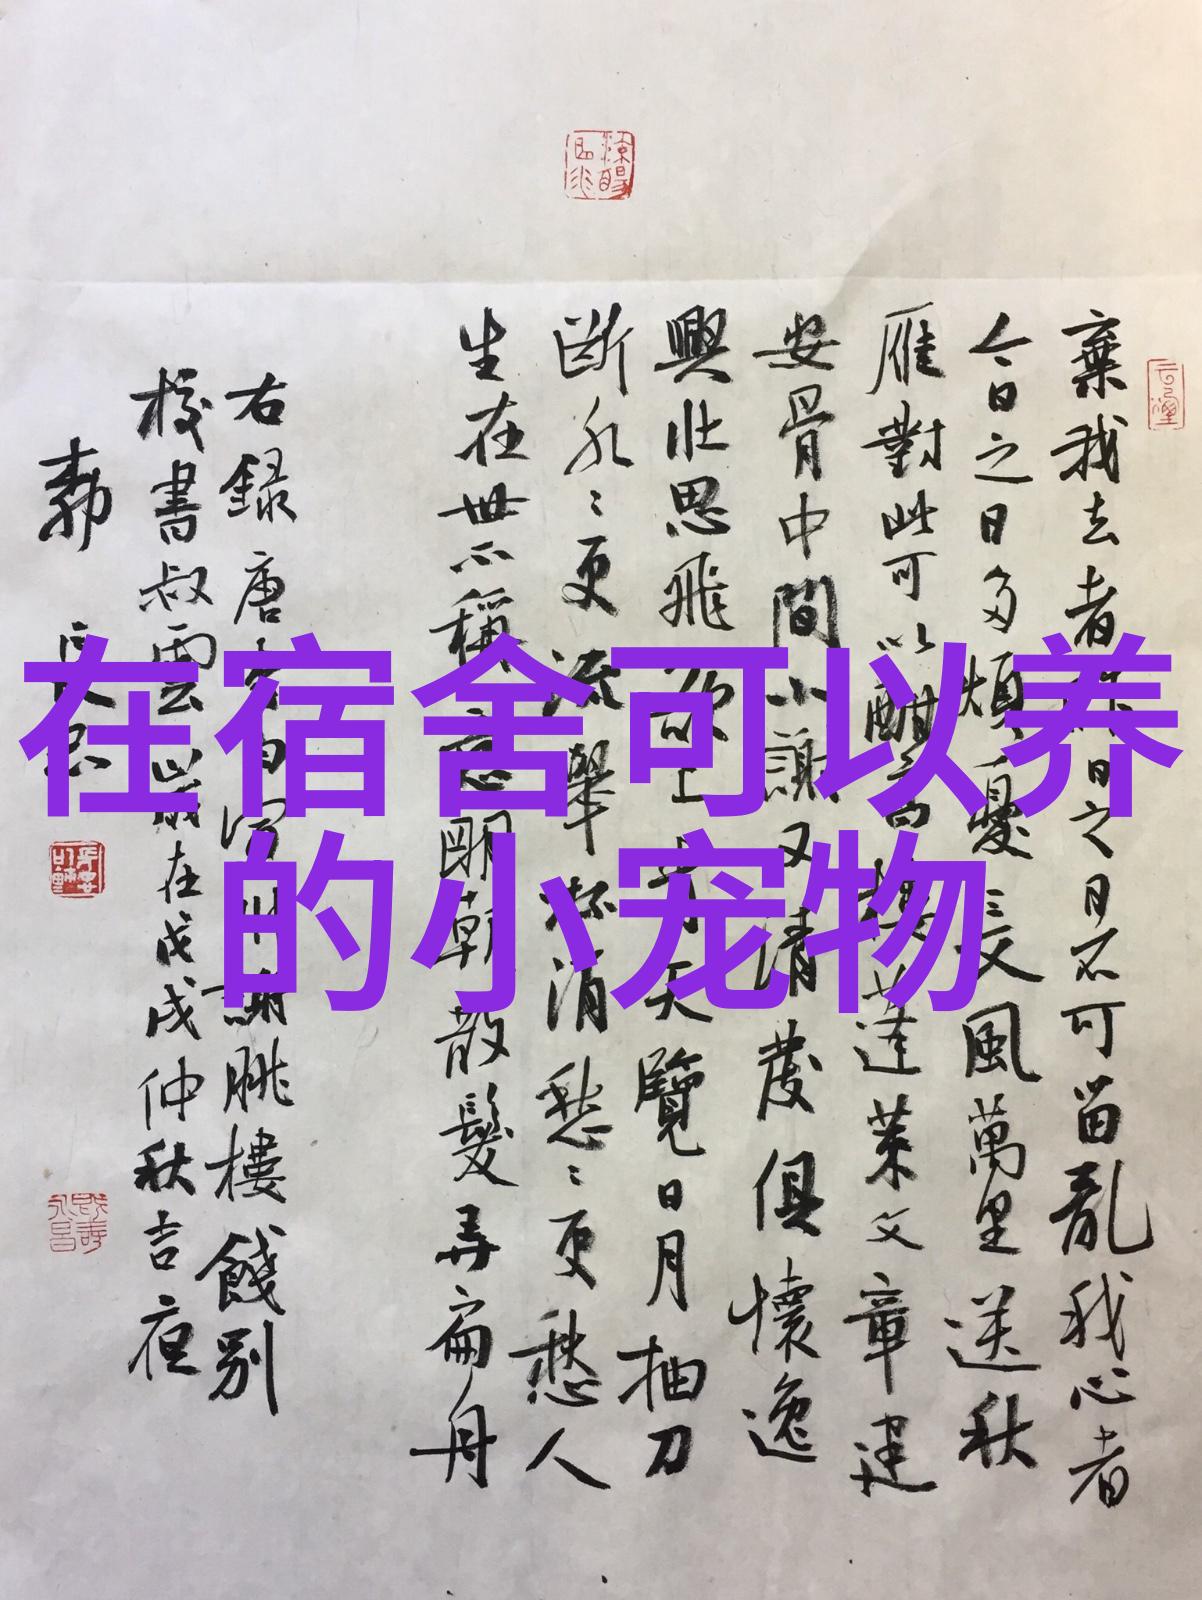 在宿舍可以养
的小宠物
棄我去者昨日之日不可留亂我心者
今日之日多煩憂長風萬里送秋
雁對此可以酣高樓蓬萊文章建
安骨中間小謝又清發俱懷逸
興壯思飛欲上青天覽日月抽刀
断水〻更流舉杯消愁〻更愁人
生在世不稱意明朝散髮弄扁舟
右録唐李白宣州謝朓樓餞別
校書叔雲歲在戊戌仲秋吉夜